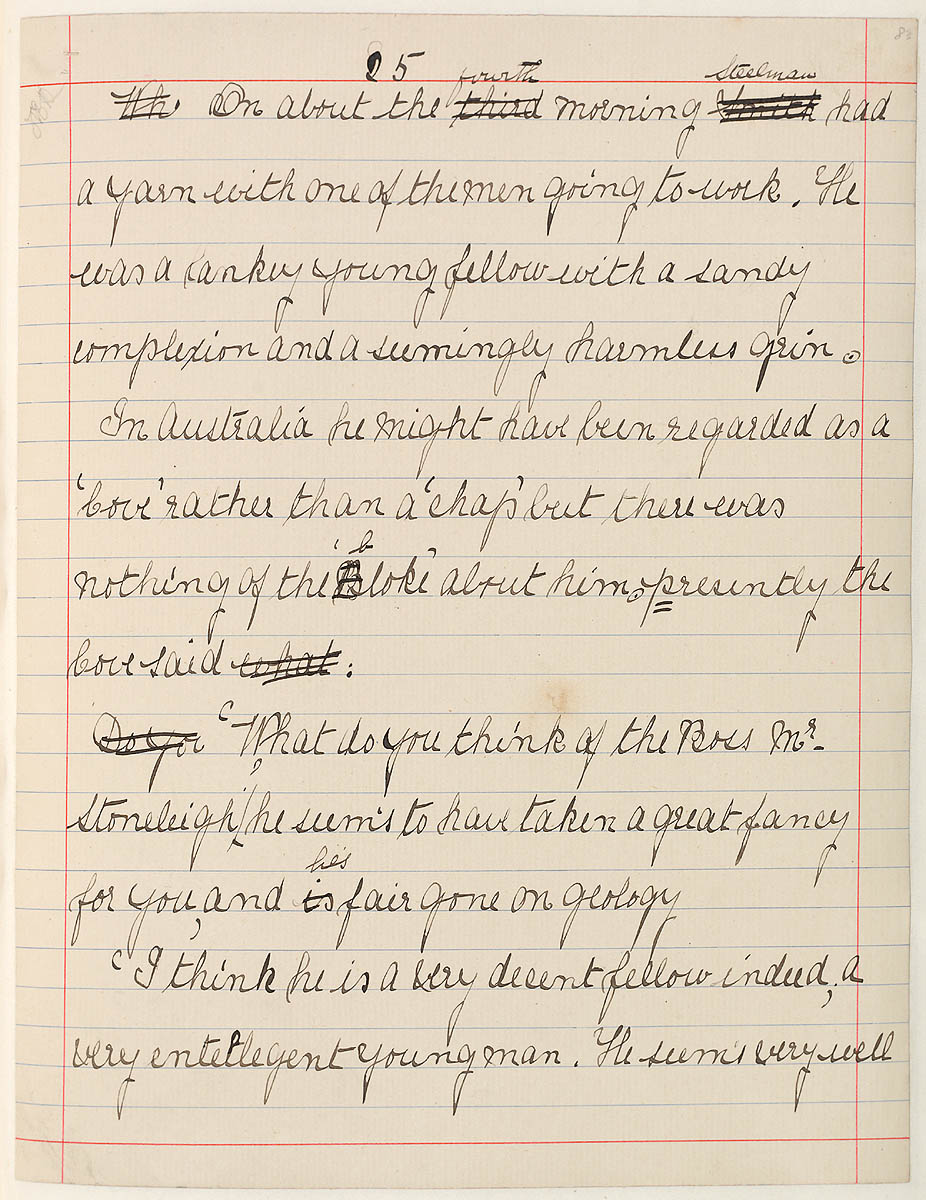 25
fourth Steelman
Wh On about the third morning Smith had
a yarn with one of the men going to work. He
was a lanky young fellow with a sandy
complexion and a seemingly harmless grin.
In Australia he might have been regarded as a
'cove' rather than a 'chap' but there was
b
nothing of the 'Bloke' about him. presently the
cove said what:
Do you 'What do you think of the Boss Mr.
Stoneleigh, he seems to have taken a great fancy
he's
for you, and is fair gone on geology
'I think he is a very decent fellow indeed, a
very entellegent young man. He seems very well